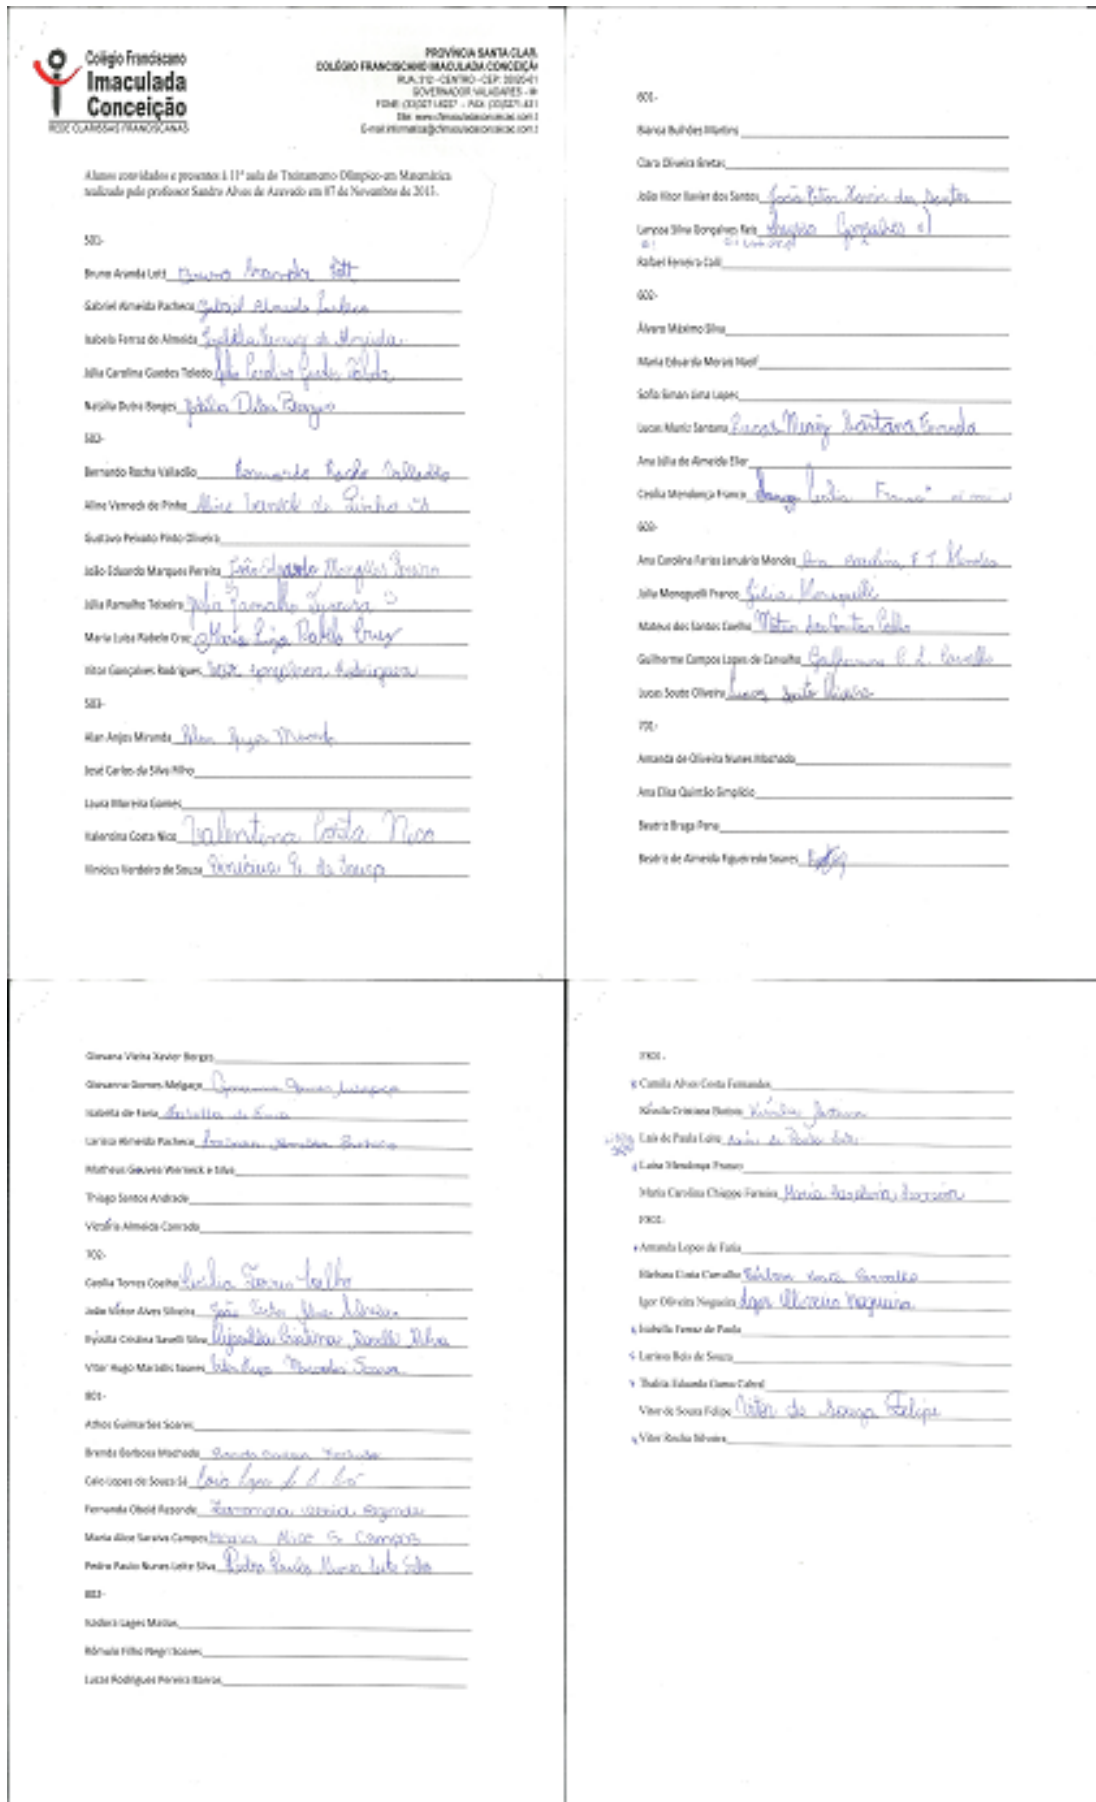 Colégio Franciscano
Imaculada
Conceição
REDE CLARISSAS FRANCISCANAS
PROVÍNCIA SANTA CLAR
COLÉGIO FRANCISCANO IMACULADA CONCEIÇÃ
RUA: 312 - CENTRO - CEP:
GOVERNADOR VALADARES -
Alunos convidados e presentes à 11ª aula do Treinamento Olímpico em Matemática
realizado pelo professor Sandro Alves de Azevedo em 07 de Novembro de 2013.
501-
Bruno Aranda Lott Bruno Aranda Lott
Gabriel Almeida Pacheco Gabriel Almeida Pacheco
Isabela Ferraz de Almeida Ferraz de Almeida
Júlia Carolina Guedes Toledo Júlia Carolina Guedes Toledo
Natália Dutra Borges Natália Dutra Borges
502-
Bernardo Rocha Valladão Bernardo Rocha Valladão
Aline Verneck de Pinho Aline Verneck de Pinho
Gustavo Peixoto Pinto Oliveira
João Eduardo Marques Pereira João Eduardo Marques
Júlia Ramalho Teixeira Júlia Ramalho Teixeira
Maria Luiza Rabelo Cruz Maria Luiza Rabelo Cruz
Vitor Gonçalves Rodrigues Vitor Gonçalves Rodrigues
503-
Alan Anjos Miranda Alan Anjos Miranda
José Carlos da Silva Filho
Laura Moreira Gomes
Valentina Costa Nico Valentina Costa Nico
Vinicius Verdeiro de Souza Vinicius de Souza
601-
Bianca Bulhões Martins
Clara Oliveira Bretas
João Vitor Xavier dos Santos João Vitor Xavier dos Santos
Silva Gonçalves Reis Gonçalves
Rafael Ferreira
602-
Álvaro Máximo Silva
Maria Eduarda Morais
Sofia Siman Lima Lopes
Lucas Muniz Santana Lucas Muniz Santana
Ana Júlia de Almeida Eller
Cecília Mendonça Franco Cecília Franco
603-
Ana Carolina Farias Januário Mendes Ana Carolina F. J. Mendes
Julia Meneguelli Franco Júlia Meneguelli
Mateus dos Santos Coelho Mateus dos Santos Coelho
Guilherme Campos Lopes de Carvalho Guilherme C. L. Carvalho
Lucas Souto Oliveira Lucas Souto Oliveira
701-
Amanda de Oliveira Nunes Machado
Ana Elisa Quintão Simplício
Beatriz Braga Pena
Beatriz de Almeida Figueiredo Soares
Giovana Vieira Xavier Borges
Giovanna Gomes Melgaço Giovanna Gomes Melgaço
Isabella de Faria Isabella de Faria
Larissa Almeida Pacheco Larissa Almeida Pacheco
Matheus Gouvea Werneck e Silva
Thiago Santos Andrade
Victória Almeida Conrado
702-
Cecília Torres Coelho Cecília Torres Coelho
João Victor Alves Silveira João Victor Alves Silveira
Cristina Savelli Silva Cristina Savelli Silva
Vitor Hugo Soares Vitor Hugo Soares
801-
Athos Guimarães Soares
Brenda Barbosa Machado Brenda Barbosa Machado
Caio Lopes de Souza Sá Caio Lopes
Fernanda Obeid Rezende Fernanda Obeid Rezende
Maria Alice Saraiva Campos Maria Alice S. Campos
Pedro Paulo Nunes Leite Silva Pedro Paulo Nunes Leite Silva
802-
Isadora Lages
Rômulo Filho Negri Soares
Lucas Rodrigues Pereira Barros
Camila Alves Costa Fernandes
Cristiana
Laís de Paula Leite Laís de Paula Leite
Luísa Mendonça Franco
Maria Carolina Chiappe Ferreira Maria Carolina Ferreira
Amanda Lopes de Faria
Bárbara Costa Carvalho Bárbara Costa Carvalho
Igor Oliveira Nogueira Igor Oliveira Nogueira
Isabella Ferraz de Paula
Larissa Reis de Souza
Eduarda Gama Cabral
Vitor de Souza Felipe Vitor de Souza Felipe
Vitor Rocha Silveira